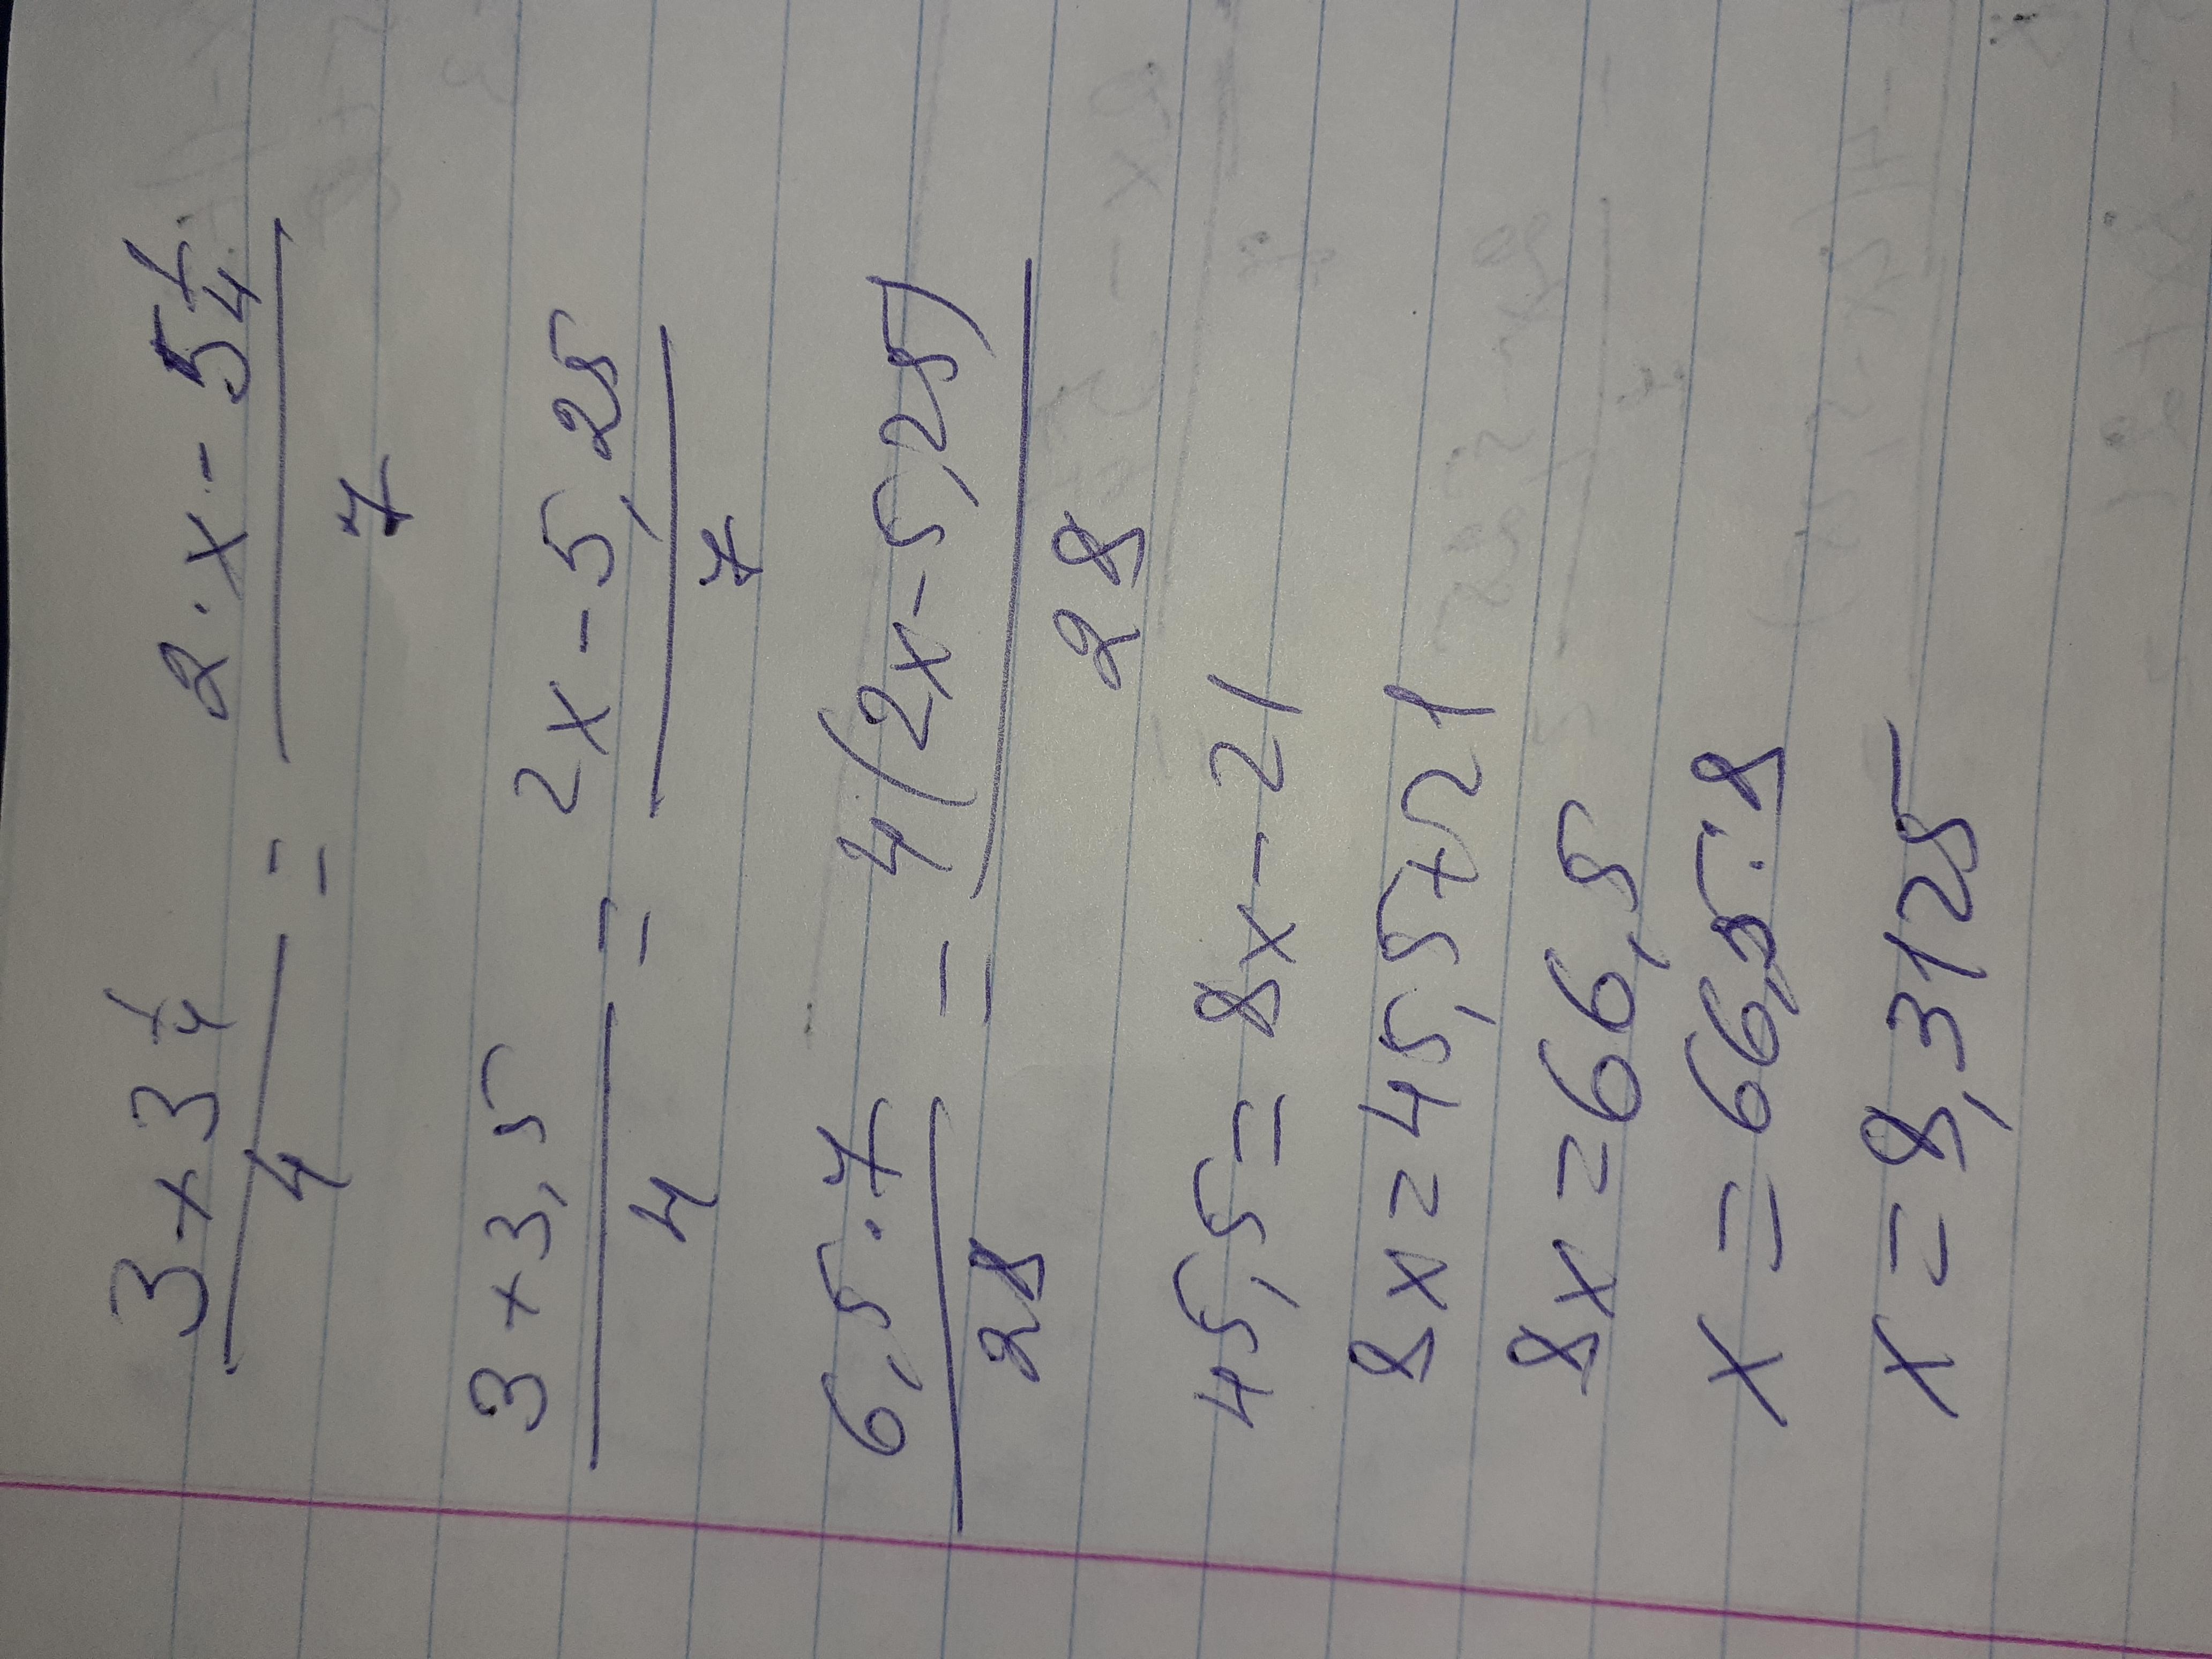 3 + 3 1/4 / 4 = 2 · x - 5 1/4 / 7
3 + 3,5 / 4 = 2x - 5,25 / 7
6,5 · 7 / 28 = 4(2x - 5,25) / 28
45,5 = 8x - 21
8x = 45,5 + 21
8x = 66,5
x = 66,5 : 8
x = 8,3125